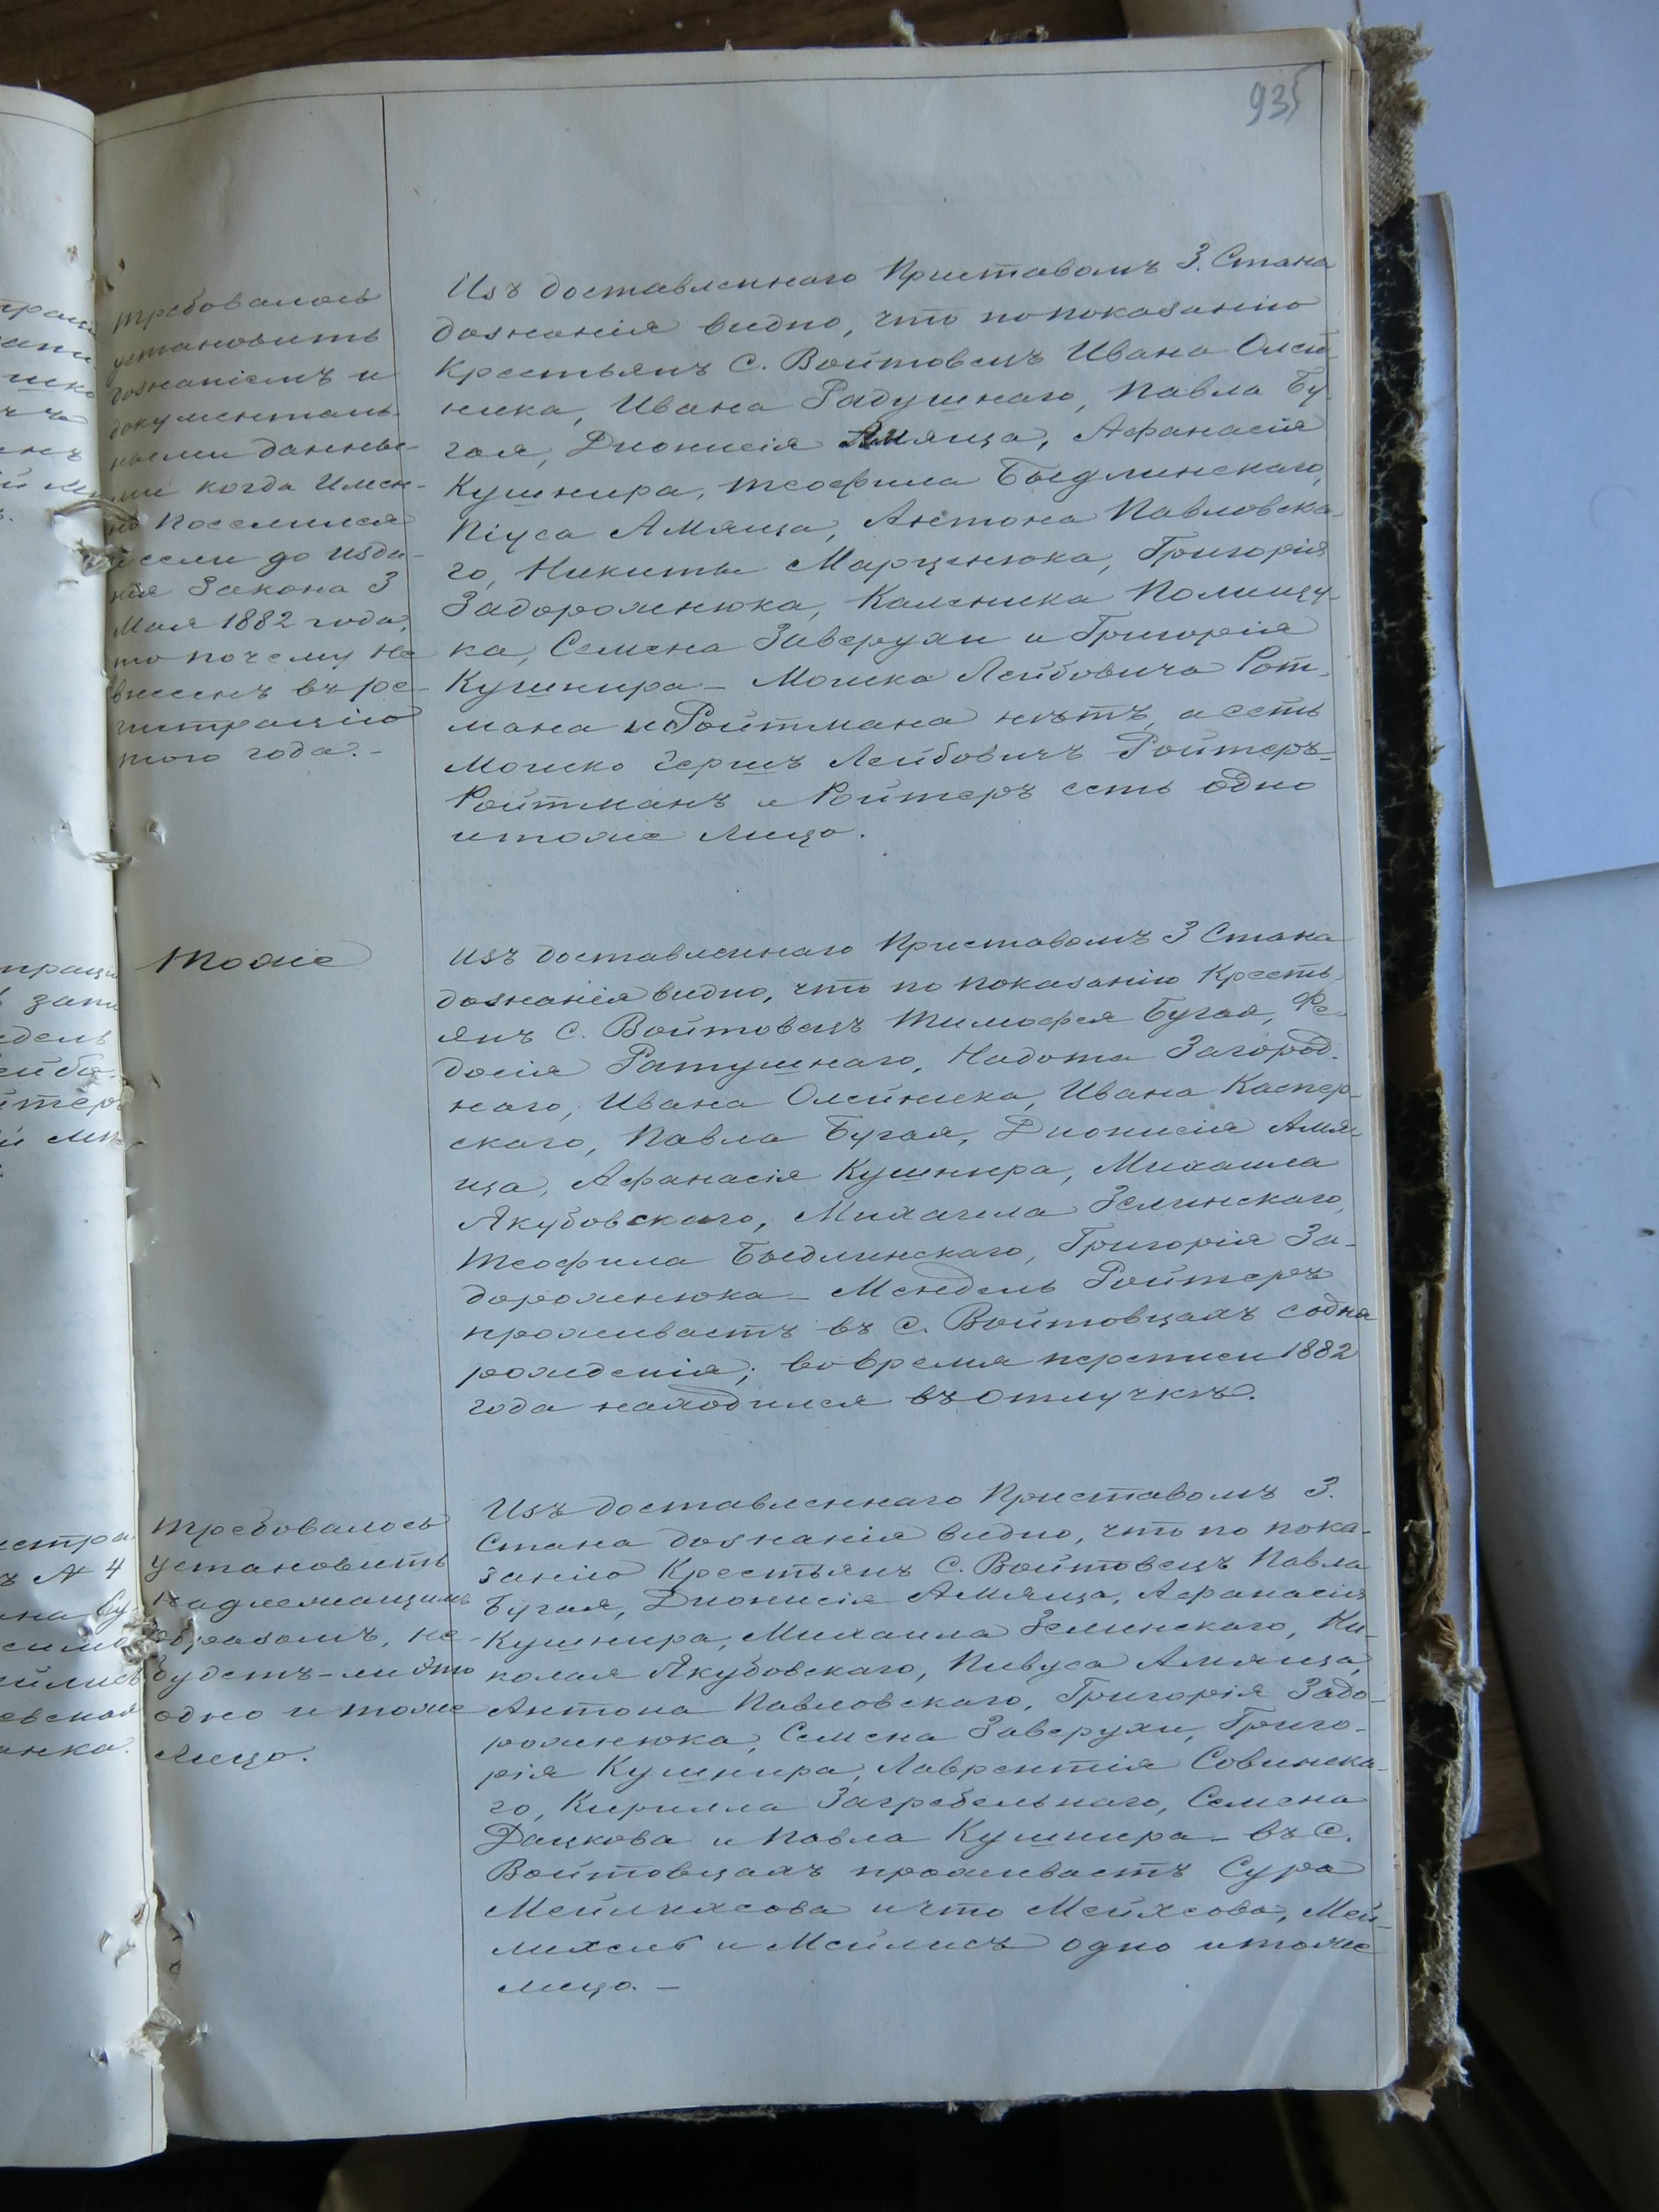 935
требовалось
установить
дознаніемъ и
документаль-
ными данны-
ми когда Имен-
но поселился
и если до изда-
нія Закона 3
Мая 1882 года,
то почему не
внесенъ въ ре-
гистрацію
того года.-
Изъ доставленнаго Приставомъ 3. Стана
дознанія видно, что попоказанію
Крестьянъ С. Войтовецъ Ивана Олей
ника, Ивана Радушнаго, Павла Бу
гая, Діонисія Амяица, Афанасія
Кушнира, Теофила Быдлинскаго,
Піуса Амяица, Антона Павловска-
го, Никиты Марценюка, Григорія
Задорожнюка, Каленика Полищу-
ка, Семена Заверухи и Григорія
Кушнира – Мошка Лейбовича Рот-
мана и Ройтмана нѣтъ, а есть
Мошко Гершъ Лейбовичъ Ройтеръ-
Ройтманъ и Ройтеръ есть одно
итоже лицо.
Тоже
Изъ доставленнаго Приставомъ 3 Стана
дознанія видно, что по показанію Кресть
янъ С. Войтовецъ Тимофея Бугая, Фе-
досія Ратушнаго, Надота Загород-
наго, Ивана Олейника, Ивана Каспер-
скаго, Павла Бугая, Діонисія Амя-
ица, Афанасія Кушнира, Михаила
Якубовскаго, Михаила Зелинскаго,
Теофила Быдлинскаго, Григорія За-
дорожнюка – Мендель Ройтеръ
проживаетъ въ С. Войтовцахъ содня
рожденія; вовремя переписи 1882
года находился въ отлучкѣ.
Требовалось
установить
надлежащимъ
образомъ, не
будетъ-ли это
одно и тоже
лицо.
Изъ доставленнаго Приставомъ 3.
Стана дознанія видно, что по пока-
занію Крестьянъ С. Войтовецъ Павла
Бугая, Діонисія Амяица, Афанасія
Кушнира, Михаила Зелинскаго, Ни-
колая Якубовскаго, Пивуса Амяица,
Антона Павловскаго, Григорія Задо-
рожнюка, Семена Заверухи, Григо-
рія Кушнира, Лаврентія Совинска-
го, Кирилла Загребельнаго, Семена
Дацкова и Павла Кушнира – въ С.
Войтовцахъ проживаетъ Сура
Мейлихсова и что Мейхсова, Мей-
лихсъ и Мейлисъ одно итоже
лицо. –